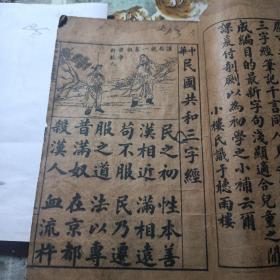 三字經筆記千言同
成編目的最新字句淺顯適合兒童之
課爰付剞劂以為初學之小補云爾
小樓氏識于聽雨樓
中華民國共和三字經
民之初 性本善
漢相近 滿相遠
苟不服 民乃遷
服之道 法以專
昔滿奴 在京都
殺漢人 血流杵